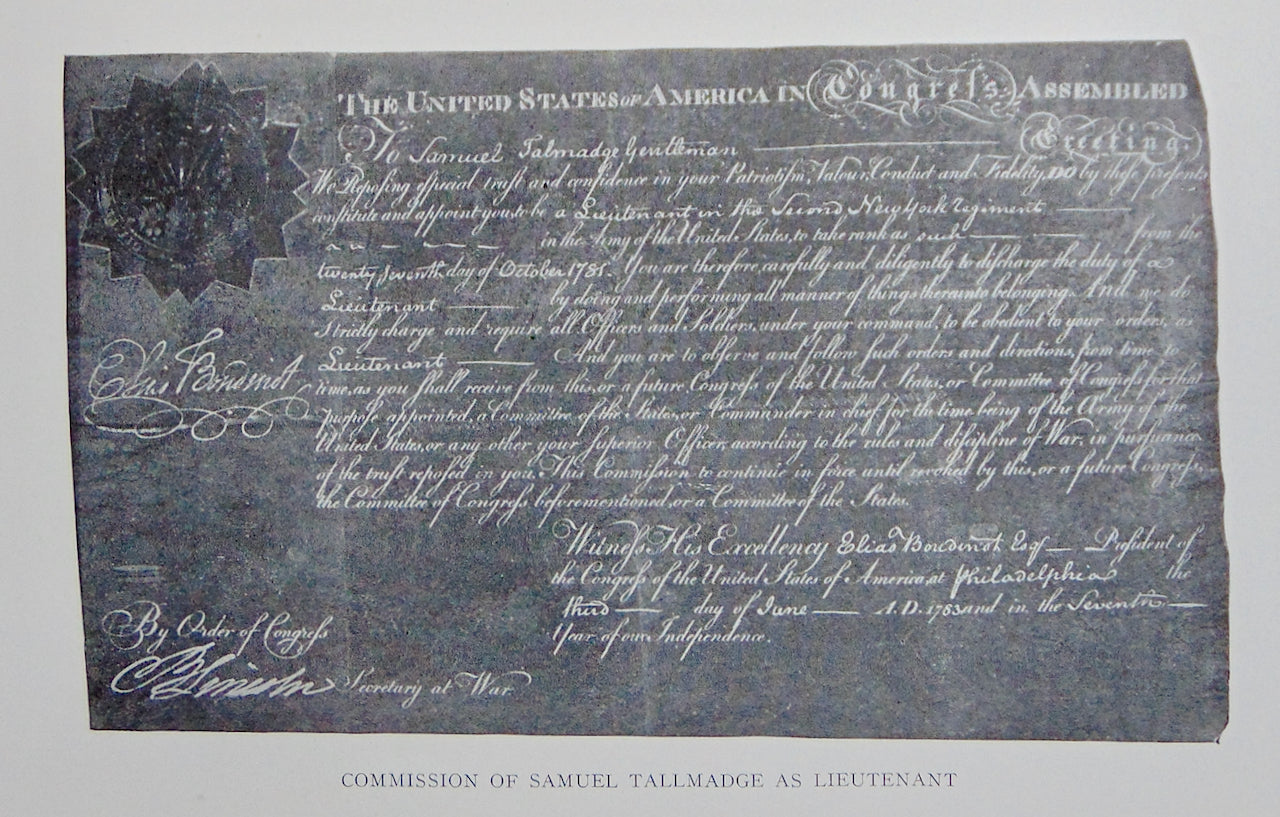 THE UNITED STATES OF AMERICA IN Congreſs ASSEMBLED
Greeting.
To Samuel Talmadge Gentleman
We Repoſing eſpecial truſt and confidence in your Patriotiſm, Valour, Conduct and Fidelity, DO by theſe preſents
conſtitute and appoint you to be a Lieutenant in the Second New York Regiment
in the Army of the United States, to take rank as such from the
twenty Seventh day of October 1781. You are therefore, carefully and diligently to diſcharge the duty of a
Lieutenant by doing and performing all manner of things thereunto belonging. And we do
Strictly charge and require all Officers and Soldiers, under your command, to be obedient to your orders, as
Lieutenant And you are to obſerve and follow ſuch orders and directions, from time to
time, as you ſhall receive from this, or a future Congreſs of the United States, or Committee of Congreſs for that
purpoſe appointed, a Committee of the States, or Commander in chief for the time being of the Army of the
United States, or any other your Superior Officer, according to the rules and diſcipline of War, in purſuance
of the truſt repoſed in you. This Commission to continue in force until revoked by this, or a future Congreſs,
the Committee of Congreſs before mentioned, or a Committee of the States.
Elias Boudinot
Witneſs His Excellency Elias Boudinot Esqr Preſident of
the Congreſs of the United States of America, at Philadelphia the
third day of June A.D. 1783 and in the Seventh
Year of our Independence.
By Order of Congreſs
B Lincoln Secretary at War
COMMISSION OF SAMUEL TALLMADGE AS LIEUTENANT